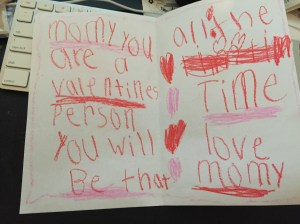 momy you
are a
valentines
person
you will
Be that
all the
Time
love
momy